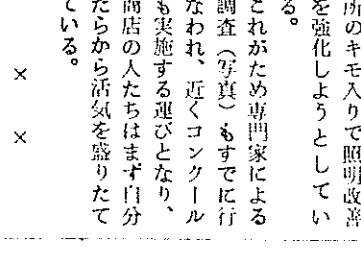 所のキモ入りで照明改善
を強化しようとしてい
る。
これがため専門家による
調査(写真)もすでに行
なわれ、近くコンクール
も実施する運びとなり、
商店の人たちはまず自分
たちから活気を盛りたて
ている。
× ×